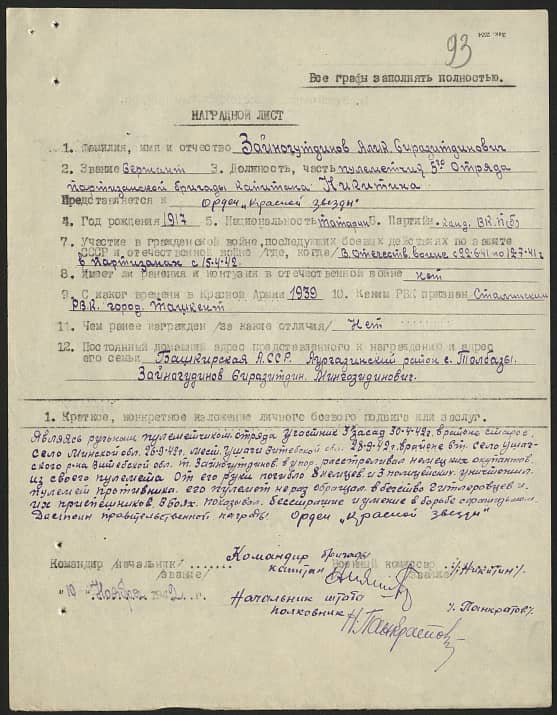 93
Все графы заполнять полностью.
НАГРАДНОЙ ЛИСТ
1. Фамилия, имя и отчество Зайногутдинов Ялик Сиразитдинович
2. Звание Сержант 3. Должность, часть пулеметчик 5го Отряда
партизанской бригады капитана Никитина
Представляется к Орден "Красной звезды"
4. Год рождения 1917 5. Национальность татарин 6. Партийн. канд. ВКП(б)
7. Участие в гражданской войне, последующих боевых действиях по защите
СССР и отечественной войне /где, когда/ В отечеств. войне с 22-6-41 по 12-7-41 г
в партизанах с 15-4-42.
8. Имеет ли ранения и контузии в отечественной войне нет
9. С какого времени в Красной Армии 1939 10. Каким РВК призван Сталинским
РВК. город. Ташкент
11. Чем ранее награжден /за какие отличия/ Нет
12. Постоянный домашний адрес представленного к награждению и адрес
его семьи Башкирская АССР. Аургазинский район с. Толбазы.
Зайногудинов Сиразитдин Мингазидинович.
1. Краткое, конкретное изложение личного боевого подвига или заслуг.
Являясь ручным пулеметчиком отряда участник 3 засад 30-4-42 г. в районе старое
село Минской обл. 26-9-42 г. мест. Ушачи Витебской обл. 28-9-42 г. в районе вт. село Ушач-
ского р-на Витебской обл. т. Зайногутдинов в упор расстреливал немецких окупантов
из своего пулемета От его руки погибло 8 немцев и 3 полицейских. уничтожил
пулемет противника. его пулемет не раз обращал в бегство гитлеровцев и
их приспешников. В боях показывал бесстрашие и умение в борьбе с фашизмом
Достоин правительственной награды Орден "Красной звезды"
Командир бригады
Командир /начальник/ Военный комиссар
капитан /Никитин/.
/звание/ /звание/
"10" Ноября 1942 г.
Начальник штаба
полковник / Панкратов/.
Н. Панкратов